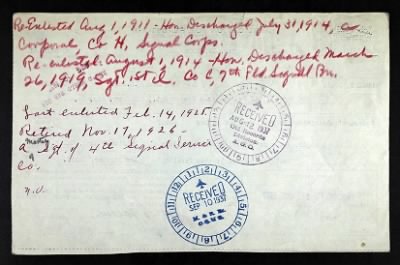 Re-Enlisted Aug 1, 1911 - Hon. Discharged July 31, 1914, a
Corporal, Co H, Signal Corps.
Re-enlisted August 1, 1914 - Hon. Discharged March
26, 1919, Sgt. 1st Cl. Co C 7th Fld Signal Bn.
Last enlisted Feb. 14, 1925.
Retired Nov. 17, 1926 -
a Master Sgt. of 4th Signal Service
Co.
RECEIVED
AUG 12 1937
Old Records
Division
A.G.O.
RECEIVED
SEP 10 1937